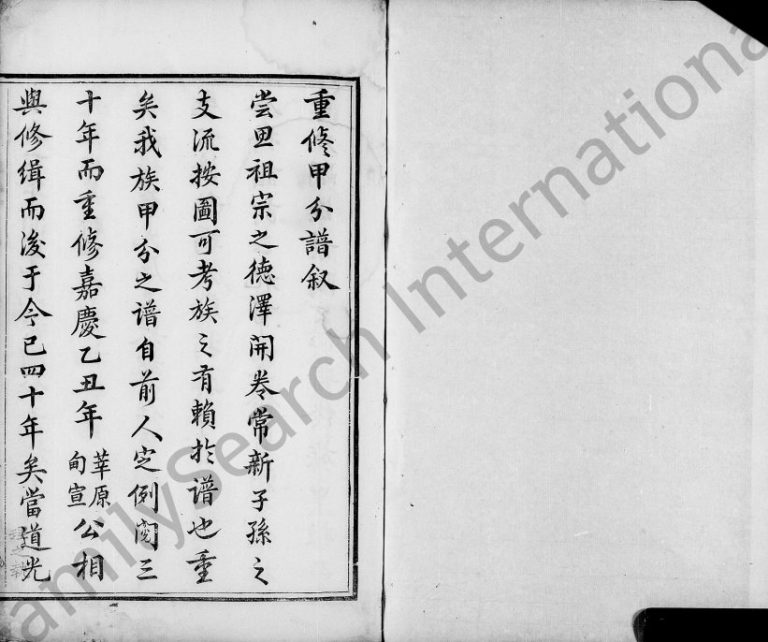 重修甲分譜叙
嘗思祖宗之德澤開卷常新子孫之
支流按圖可考族之有賴於譜也重
矣我族甲分之譜自前人定例閱三
十年而重修嘉慶乙丑年莘原甸宣公相
與修緝而後于今已四十年矣當道光
FamilySearch International